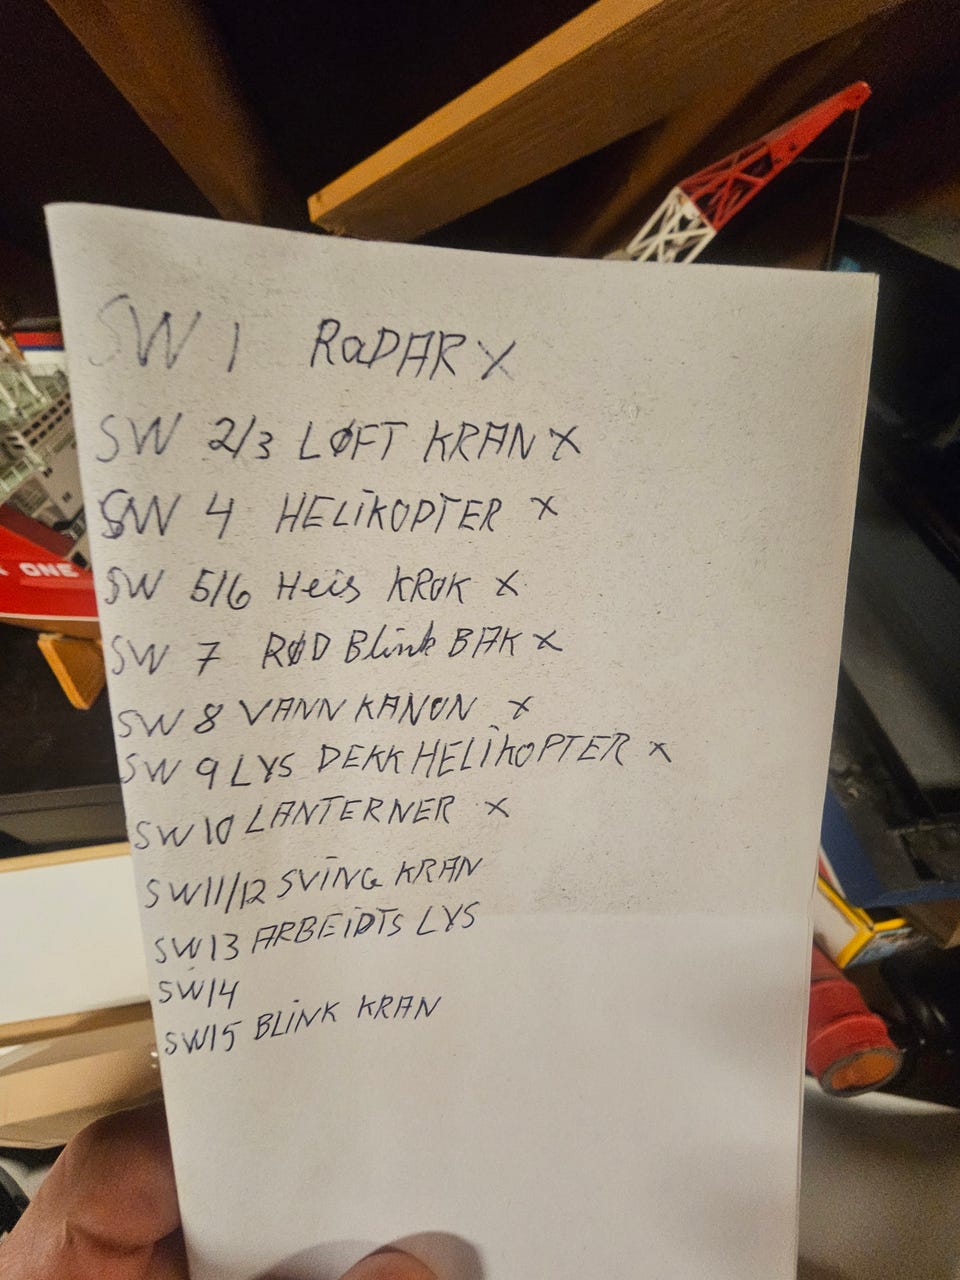 SW 1 RaDAR X
SW 2/3 LØFT KRAN X
SW 4 HELiKOPTER X
SW 5/6 Heis KROK X
SW 7 RØD Blink BAK X
SW 8 VANN KANON X
SW 9 LYS DEKK HELiKOPTER X
SW 10 LANTERNER X
SW11/12 SViNG KRAN
SW13 ARBEiDTS LYS
SW14
SW15 BLiNK KRAN
ONE